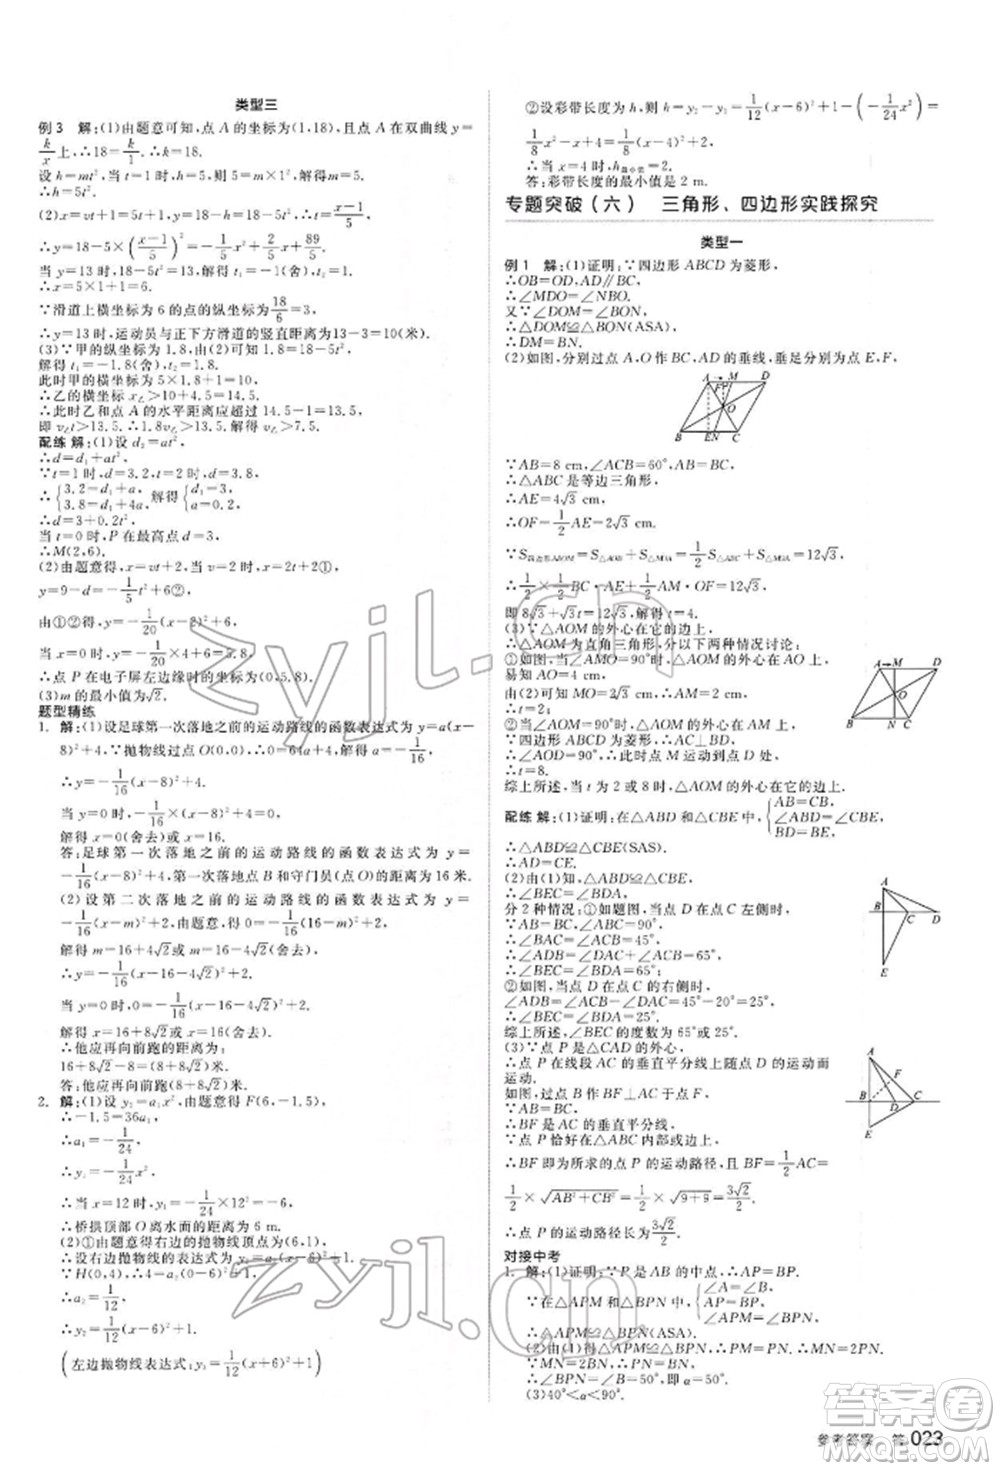 类型三
例3 解:(1)由题意可知,点A的坐标为(1,18),且点A在双曲线y=
k/x上,∴18=k/1.∴k=18.
设h=mt²,当t=1时,h=5,∴5=m.
∴h=5t².
(2)x=vt+1=5t+1,∴t=(x-1)/5.
∴y=18-5×((x-1)/5)²=-1/5x²+2/5x+89/5.
当y=13时,13=18-5t²,解得t₁=-1(舍),t₂=1.
∴x=5×1+1=6.
∵滑道上横坐标为6的点的纵坐标为18/6=3,
∴y=13时,运动员与正下方滑道的竖直距离为13-3=10(米).
(3)∵甲的纵坐标为1.8,由(2)可得18-5t²=1.8,
解得t₁=-1.8(舍),t₂=1.8.
此时甲的横坐标为5×1.8+1=10.
∴乙的横坐标x乙>10+4.5=14.5.
∴此时乙和点A的水平距离应超过14.5-1=13.5(米).
即v乙t>13.5.∴1.8v乙>13.5.解得v乙>7.5.
配练 解:(1)设d₂=at².
∴d=d₁+at².
∵t=1时,d=3.2,t=2时,d=3.8.
∴{3.2=d₁+a,3.8=d₁+4a.解得{d₁=3,a=0.2.
∴d=3+0.2t².
当t=0时,P在最高点d=3.
∴M(2,6).
(2)由题意,得x=vt+2①,
y=9-d=-1/5t²+6②,
由①②得y=-1/20(x-2)²+6.
当x=0时,y=-1/20×4+6=5.8.
∴点P在电子屏左边缘时的坐标为(0,5.8).
(3)m的最小值为√2.
题型精练
1. 解:(1)设足球第一次落地之前的运动路线的函数表达式为y=a(x-
8)²+4.∵抛物线过点O(0,0),∴0=64a+4.解得a=-1/16.
∴y=-1/16(x-8)²+4.
当y=0时,-1/16×(x-8)²+4=0,
解得x=0(舍去)或x=16.
答:足球第一次落地之前的运动路线的函数表达式为y=
-1/16(x-8)²+4;第一次落地点B和守门员(点O)的距离为16米.
(2)设第二次落地之前的运动路线的函数表达式为y=
-1/16(x-m)²+2,由题意,得0=-1/16(16-m)²+2,
解得m=16+4√2或m=16-4√2(舍去).
∴y=-1/16(x-16-4√2)²+2.
当y=0时,0=-1/16(x-16-4√2)²+2.
解得x=16+8√2或x=16(舍去).
∴他应再向前跑的距离为
16+8√2-8=(8+8√2)米.
答:他应再向前跑(8+8√2)米.
2. 解:(1)设y₁=a₁x²,由题意得F(6,-1.5),
∴-1.5=36a₁.
∴a₁=-1/24.
∴y₁=-1/24x².
∴当x=12时,y₁=-1/24×12²=-6.
∴桥拱顶部O离水面的距离为6 m.
(2)①由题意得右边的抛物线顶点为(6,1),
∴设右边抛物线的表达式为y₂=a₂(x-6)²+1.
∵H(0,4),∴4=a₂(0-6)²+1.
∴a₂=1/12.
∴y₂=1/12(x-6)²+1.
(左边抛物线表达式:y₃=1/12(x+6)²+1)
②设彩带长度为h,则h=y₂-y₁=1/12(x-6)²+1-(-1/24x²)=
1/8x²-x+4=1/8(x-4)²+2,
∴当x=4时,h最小值=2.
答:彩带长度的最小值是2 m.
专题突破(六) 三角形、四边形实践探究
类型一
例1 解:(1)证明:∵四边形ABCD为菱形,
∴OB=OD,AD∥BC.
∴∠MDO=∠NBO.
又∵∠DOM=∠BON,
∴△DOM≌△BON(ASA).
∴DM=BN.
(2)如图,分别过点A,O作BC,AD的垂线,垂足分别为点E,F,
A M D
F
O
B E N C
∵AB=8 cm,∠ABC=60°,
∴△ABC是等边三角形,
∴AE=4√3 cm,
∴OF=1/2AE=2√3 cm,
∵S四边形ABOM=S△AOB+S△AOM=1/2S△ABC+S△AOM=12√3,
∴1/2×1/2BC·AE+1/2AM·OF=12√3,
即8√3+√3t=12√3,解得t=4.
(3)∵△AOM的外心在它的边上,
∴△AOM为直角三角形,分以下两种情况讨论:
①如图,当∠AMO=90°时,外心在AO上,
易知∠OAM=60°.
由(2)可知MO=2√3,∴AM=2.
∴t=2;
②当∠AOM=90°时,外心在AM上.
∵四边形ABCD为菱形,∴AC⊥BD.
∴∠AOD=90°.∴此时点M运动到点D处.
∴t=8.
综上所述,当t=2或8时,△AOM的外心在它的边上.
A M D
O
B N C
配练 解:(1)证明:在△ABD和△CBE中,{AB=CB,∠ABD=∠CBE,BD=BE,
∴△ABD≌△CBE(SAS).
∴AD=CE.
(2)由(1)知,△ABD≌△CBE,
∴∠BEC=∠BDA.
分2种情况:①如题图,当点C在点D左侧时,
∵AB=BC,∠ABC=90°,
∴∠BAC=∠BCA=45°.
∴∠BEC=∠BDA=…=65°;
②如图,当点D在点C右侧时,
∠ADB=∠ACB-∠DAC=45°-20°=25°.
∴∠BEC=∠BDA=25°.
综上所述,∠BEC的度数为65°或25°.
(3)∵点P是△CAD的外心,
∴点P在线段AC的垂直平分线上随点D的运动而
运动.
如图,过点B作BF⊥AC于点F,
∵AB=BC,
∴BF是AC的垂直平分线,
∵点P恰好在△ABC内部或边上,
∴BF即为所求的点P的运动路径,且BF=1/2AC=
1/2×√(AB²+CB²)=1/2×√(9+9)=3√2/2.
∴点P的运动路径长为3√2/2.
A
B C D
E
A
F
B D C
E
对接中考
1. 解:(1)证明:∵P是AB的中点,∴AP=BP.
∵在△APM和△BPN中,{∠A=∠B,AP=BP,∠APM=∠BPN,
∴△APM≌△BPN(ASA).
(2)由(1)得△APM≌△BPN,∴MN=2PN.
∵MN=2BN,∴BN=PN.
∴∠BPN=∠B=50°,即α=50°.
(3)40°<α<90°.
参考答案 答023